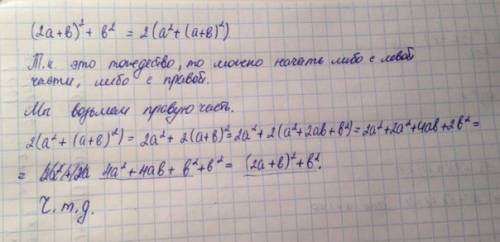 (2a+b)² + b² = 2(a²+(a+b)²)
Т.к. это тождество, то можно начать либо с левой
части, либо с правой.
Мы возьмем правую часть.
2(a²+(a+b)²) = 2a²+2(a+b)²=2a²+2(a²+2ab+b²)=2a²+2a²+4ab+2b²=
= 4a²+4ab+b²+b²= (2a+b)²+b².
Ч.т.д.